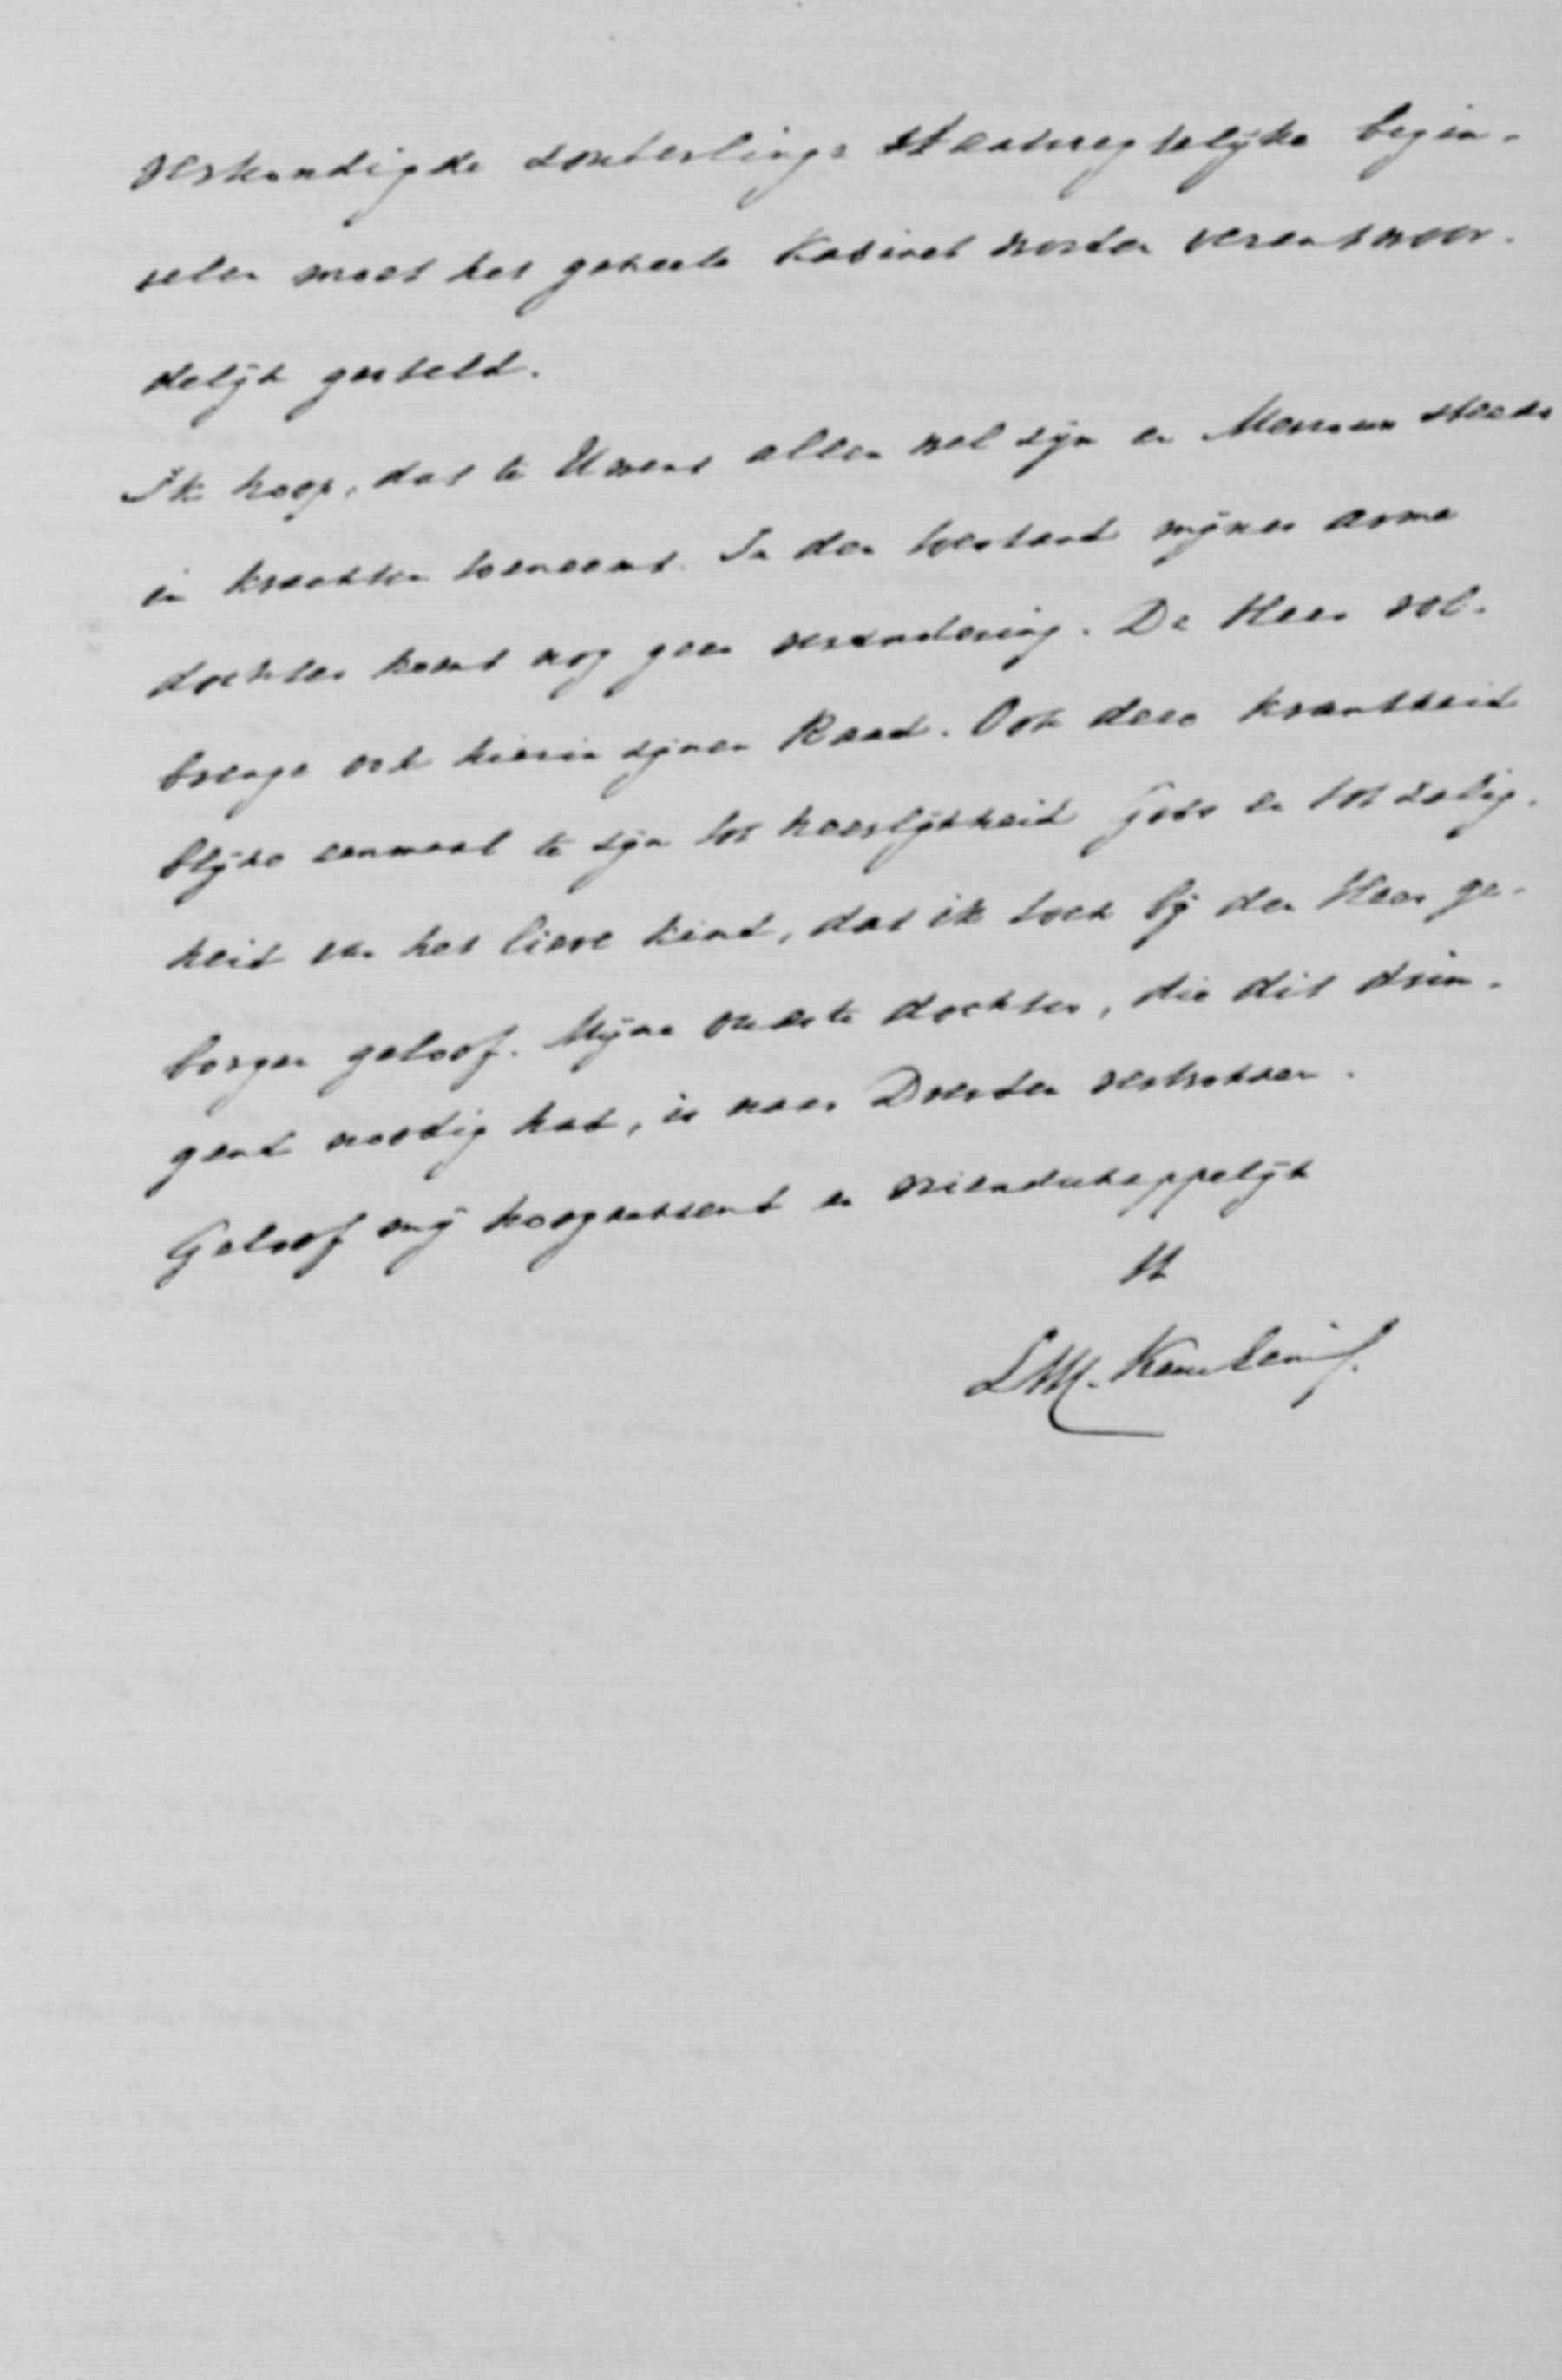 verkondigde zonderlinge staatsregtelijke begin-
selen moet het geheele Kabinet worden verantwoor-
delijk gesteld.
Ik hoop, dat te Uwent allen wel zijn en Mevrouw steeds
in krachten toeneemt. In den toestand mijner arme
dochter komt nog geen verandering. De Heer vol-
brenge ook hierin zijnen Raad. Ook deze krankheid
blijke eenmaal te zijn tot heerlijkheid Gods en tot zalig-
heid van het lieve kind, dat ik toch bij den Heer ge-
borgen geloof. Mijne oudste dochter, die dit drin-
gend noodig had, is naar Dresden vertrokken.
Geloof mij hoogachtend en vriendschappelijk